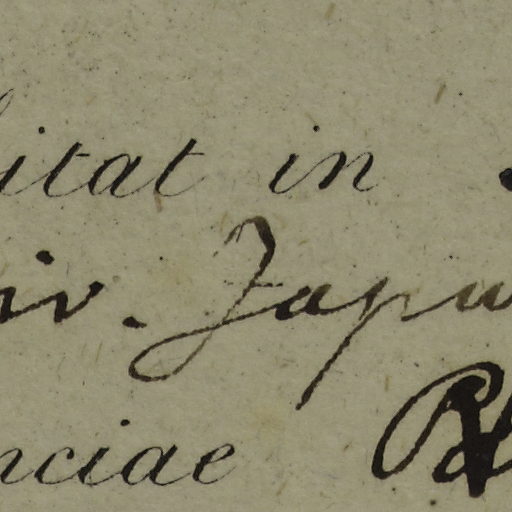 itat in
iv. Japu
nciae